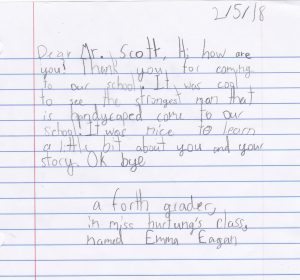 2/5/18
Dear Mr. Scott, Hi how are
you? Thank you for coming
to our school. It was cool
to see the strongest man that
is handycaped come to our
school. It was nice to learn
a little bit about you and your
story. OK bye
a forth grader,
in miss hurtung's class,
named Emma Eagan